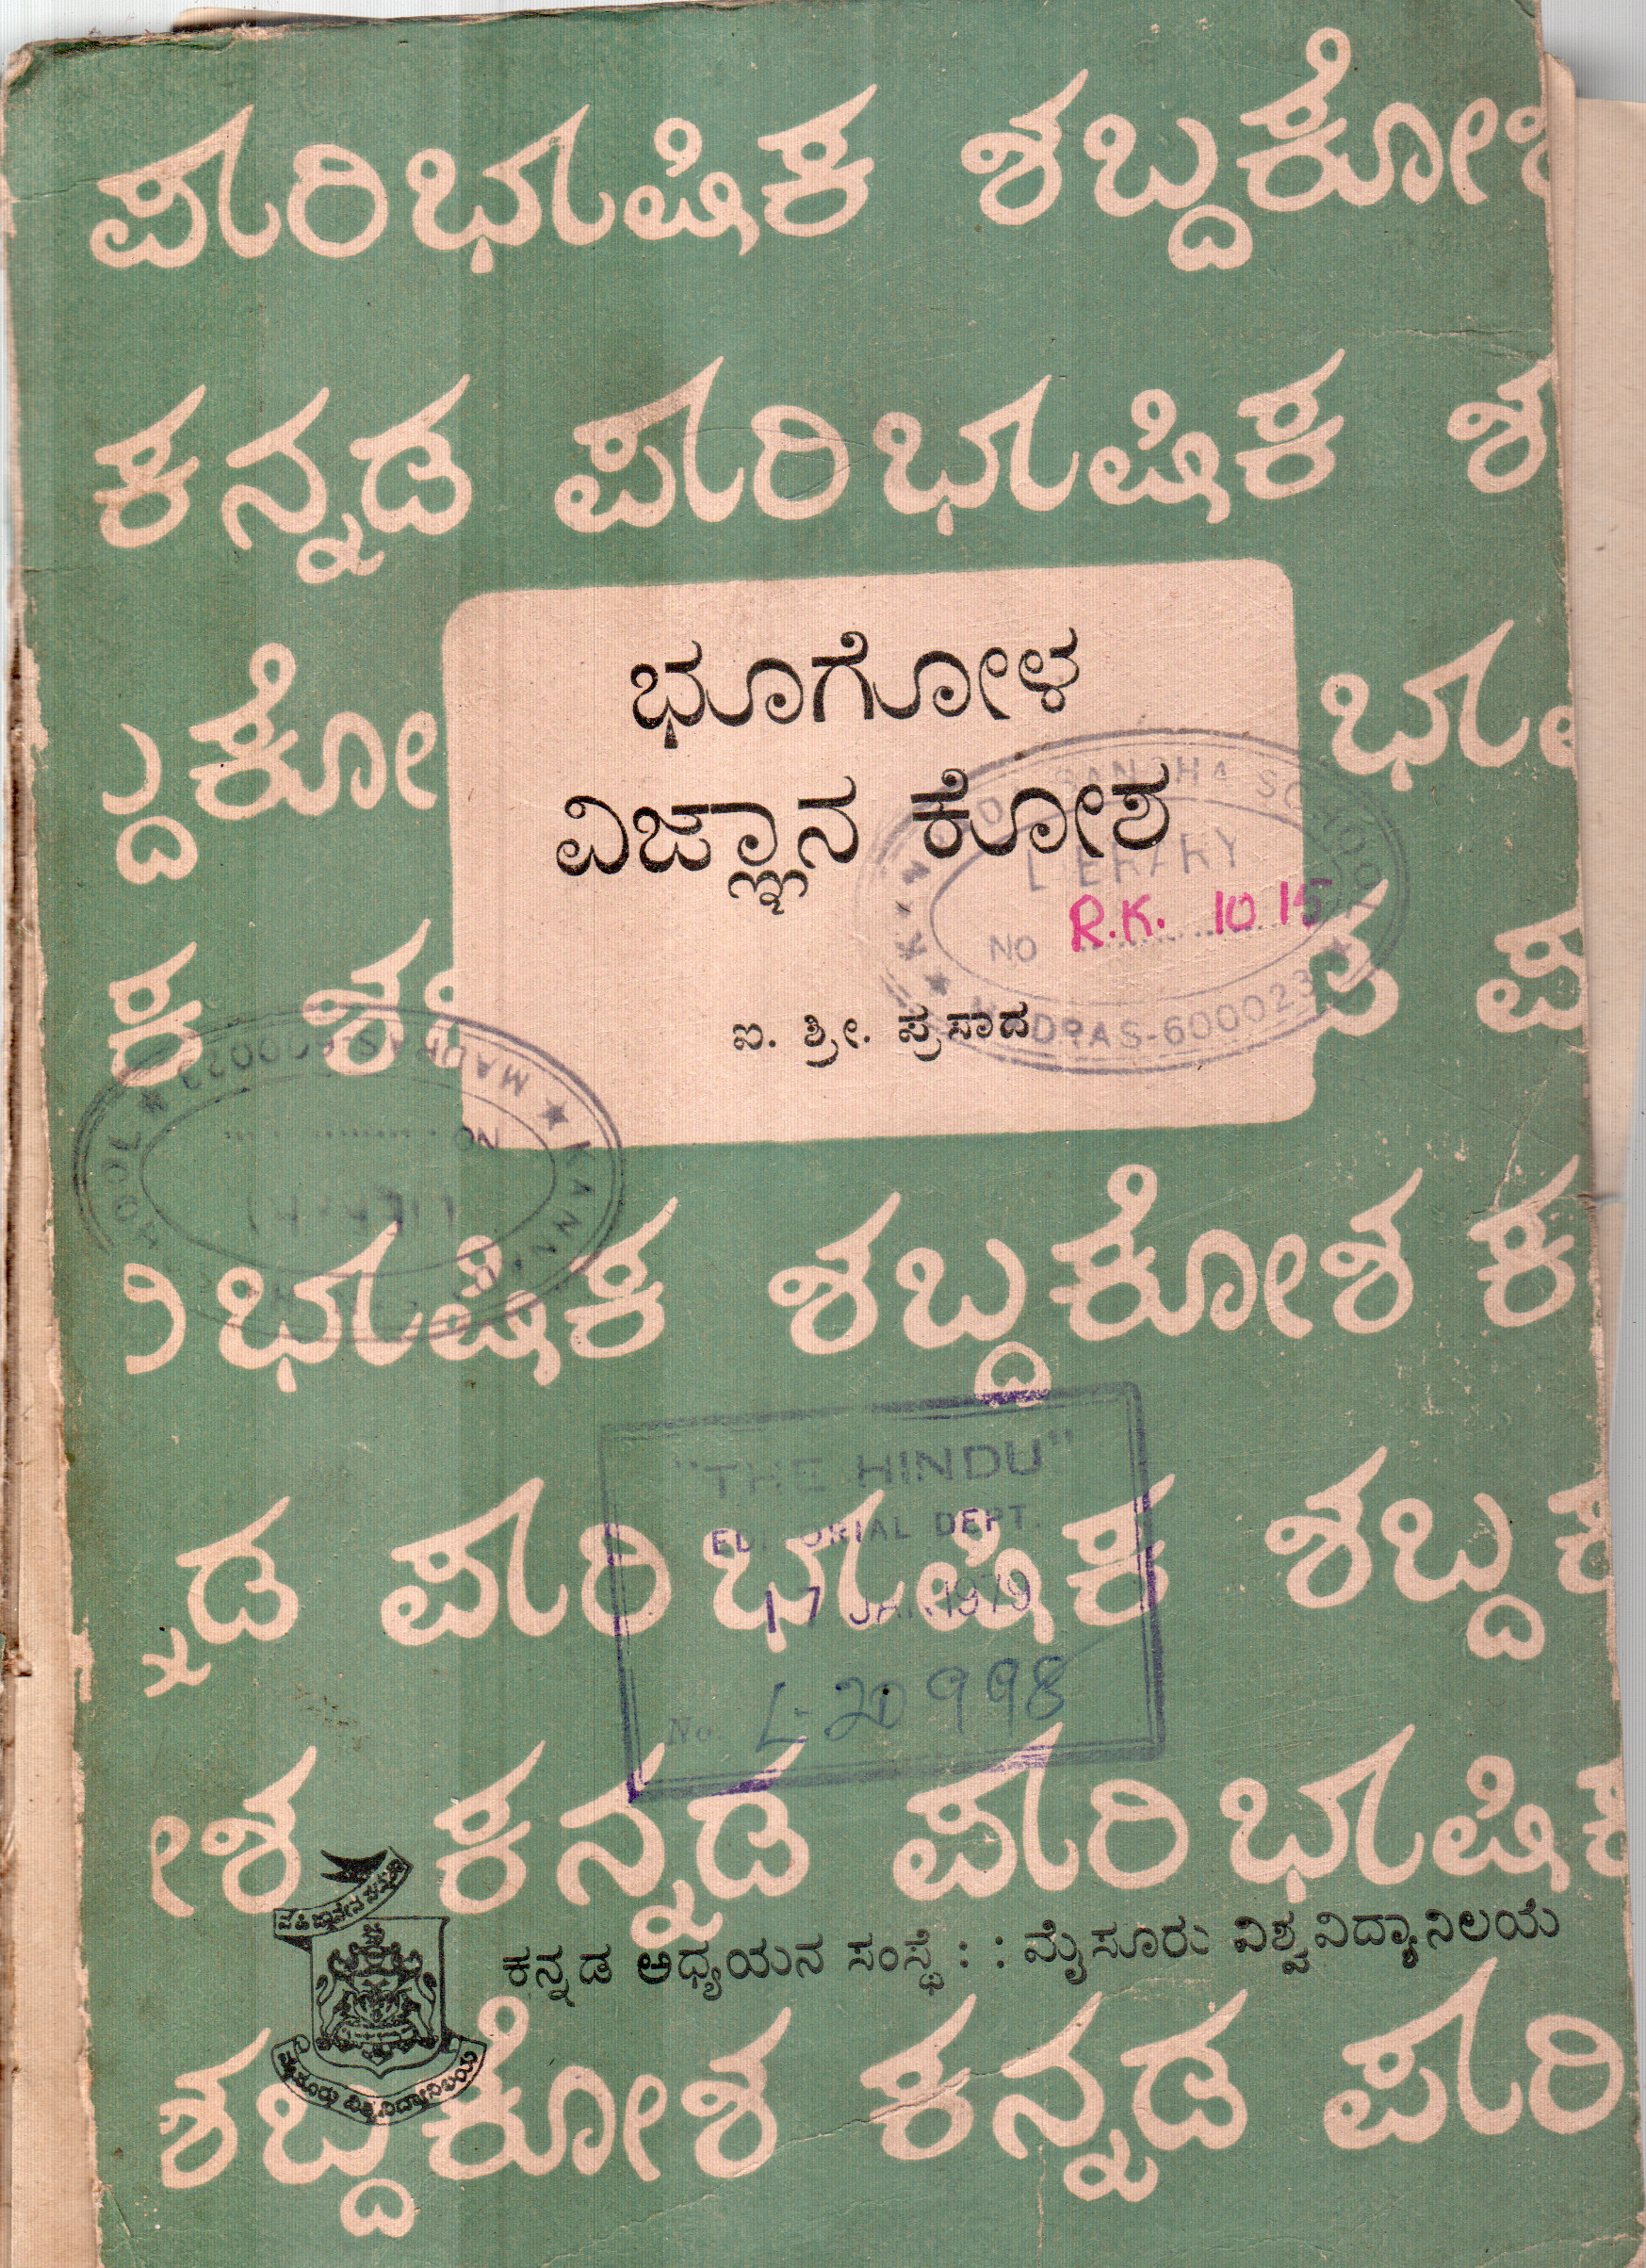 ಪಾರಿಭಾಷಿಕ ಶಬ್ದಕೋಶ
ಕನ್ನಡ ಪಾರಿಭಾಷಿಕ ಶ
ಬ್ದಕೋ ಭಾಷಿ
ಭೂಗೋಳ
ವಿಜ್ಞಾನ ಕೋಶ
LIBRARY
NO R.K. 1015
MADRAS-600023
ಐ. ಶ್ರೀ. ಪ್ರಸಾದ
ಕ ಶಬ
MADRAS-600023
NO
KANNADA
ರಿಭಾಷಿಕ ಶಬ್ದಕೋಶ ಕ
"THE HINDU"
EDITORIAL DEPT.
ನ್ನಡ ಪಾರಿಭಾಷಿಕ ಶಬ್ದಕ
17 JAN 1979
No. L-20998
ೕಶ ಕನ್ನಡ ಪಾರಿಭಾಷಿಕ
ಕನ್ನಡ ಅಧ್ಯಯನ ಸಂಸ್ಥೆ : : ಮೈಸೂರು ವಿಶ್ವವಿದ್ಯಾನಿಲಯ
ಮೈಸೂರು ವಿಶ್ವವಿದ್ಯಾನಿಲಯ
ಶಬ್ದಕೋಶ ಕನ್ನಡ ಪಾರಿ